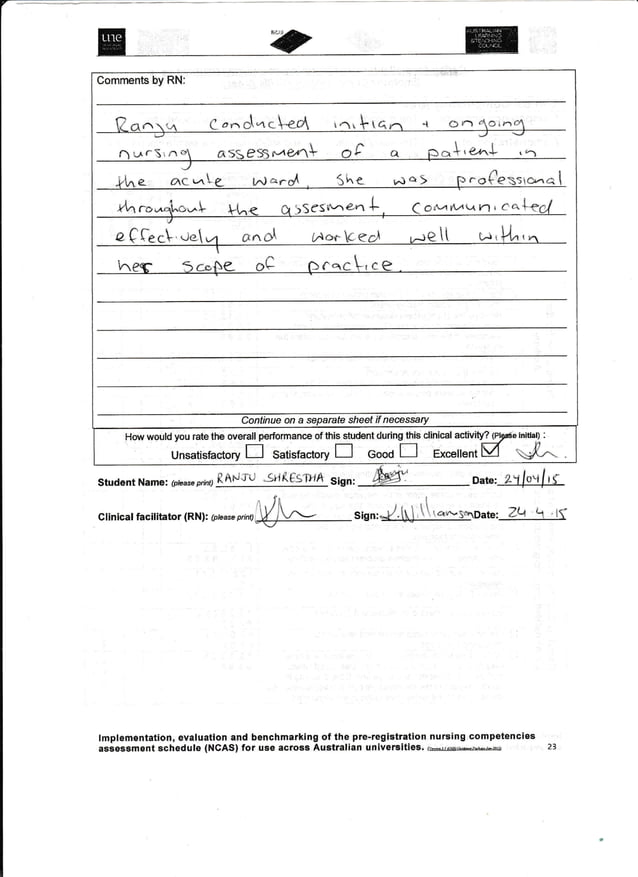 une
NCAS
AUSTRALIAN
LEARNING
& TEACHING
COUNCIL
Comments by RN:
Ranju Conducted initian + ongoing
nursing assessment of a patient in
the acute ward, She was professional
throughout the assesment, Communicated
effectively and worked well within
her scope of practice.
Continue on a separate sheet if necessary
How would you rate the overall performance of this student during this clinical activity? (Please initial) :
Unsatisfactory Satisfactory Good Excellent
Student Name: (please print) RANJU SHRESTHA Sign: Ranju Date: 24/04/15
Clinical facilitator (RN): (please print) Sign: K.Williamson Date: 24.4.15
Implementation, evaluation and benchmarking of the pre-registration nursing competencies
assessment schedule (NCAS) for use across Australian universities. 23